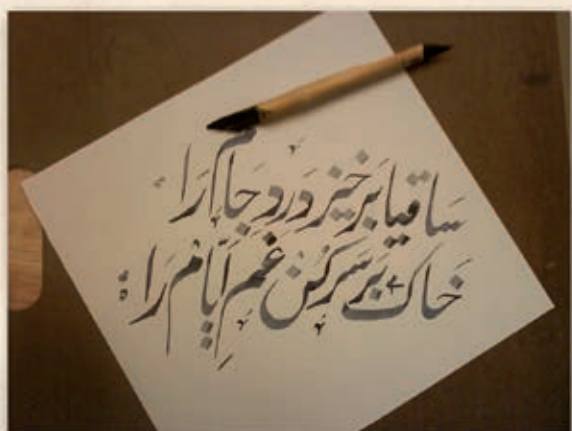 سَاقیا بَرخیز دَرد جَام رَا
خَاک بَر سَر کُن غَمِ اَیّام رَا